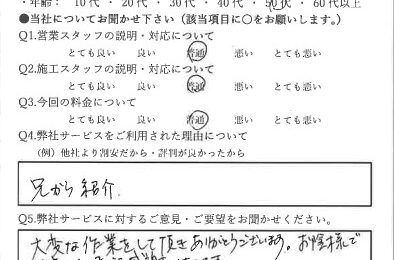 ・年齢： 10 代 ・ 20 代 ・ 30 代 ・ 40 代 ・ 50 代 ・ 60 代以上
●当社についてお聞かせ下さい（該当項目に○をお願いします。）
Q1.営業スタッフの説明・対応について
とても良い 良い 普通 悪い とても悪い
Q2.施工スタッフの説明・対応について
とても良い 良い 普通 悪い とても悪い
Q3.今回の料金について
とても良い 良い 普通 悪い とても悪い
Q4.弊社サービスをご利用された理由について
（例）他社より割安だから・評判が良かったから
兄から紹介.
Q5.弊社サービスに対するご意見・ご要望をお聞かせください。
大変な作業をして頂きありがとうございます。お陰様で